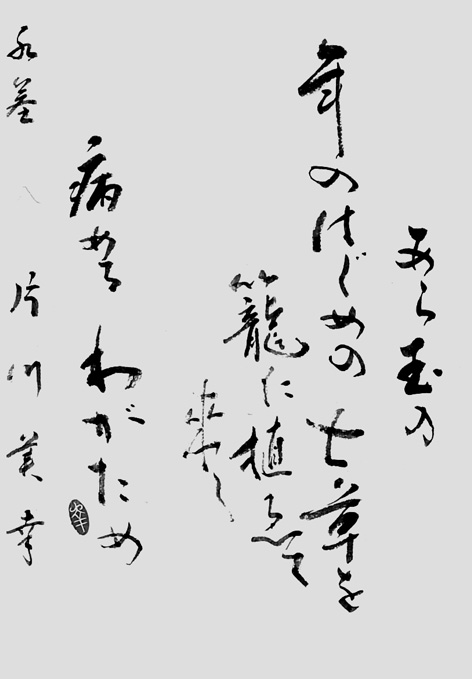 あら玉の
年のはじめの七草を
籠に植ゑて
来し
病めるわがため
片川美幸